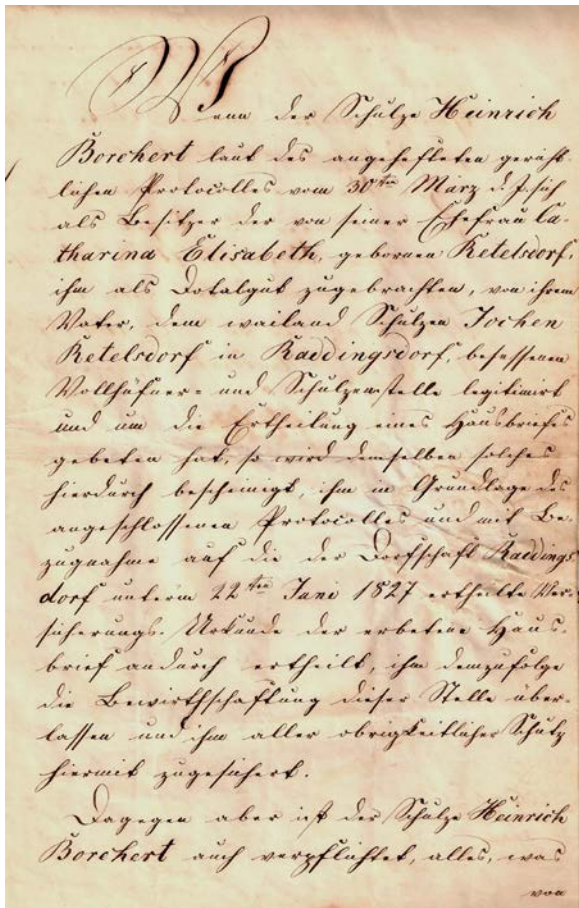 Wenn der Schulze Heinrich
Borchert laut des angehefteten gericht-
lichen Protocolles vom 30ten März d. J. sich
als Besitzer der von seiner Ehefrau Ca-
tharina Elisabeth, gebornen Retelsdorf,
ihm als Dotalgut zugebrachten, von ihrem
Vater, dem weiland Schulzen Jochen
Retelsdorf in Raddingsdorf, besessenen
Vollhüfner- und Schulzenstelle legitimirt
und um die Ertheilung eines Hausbriefes
gebeten hat, so wird demselben solches
hierdurch bescheinigt, ihm in Grundlage des
angeschlossenen Protocolles und mit Be-
zugnahme auf die der Dorfschaft Raddings
dorf unterm 22ten Juni 1827 ertheilte Ver-
sicherungs-Urkunde der erbetene Haus-
brief andurch ertheilt, ihm demzufolge
die Bewirthschaftung dieser Stelle über-
lassen und ihm aller obrigkeitlicher Schutz
hiermit zugesichert.
Dagegen aber ist der Schulze Heinrich
Borchert auch verpflichtet, alles, was
von